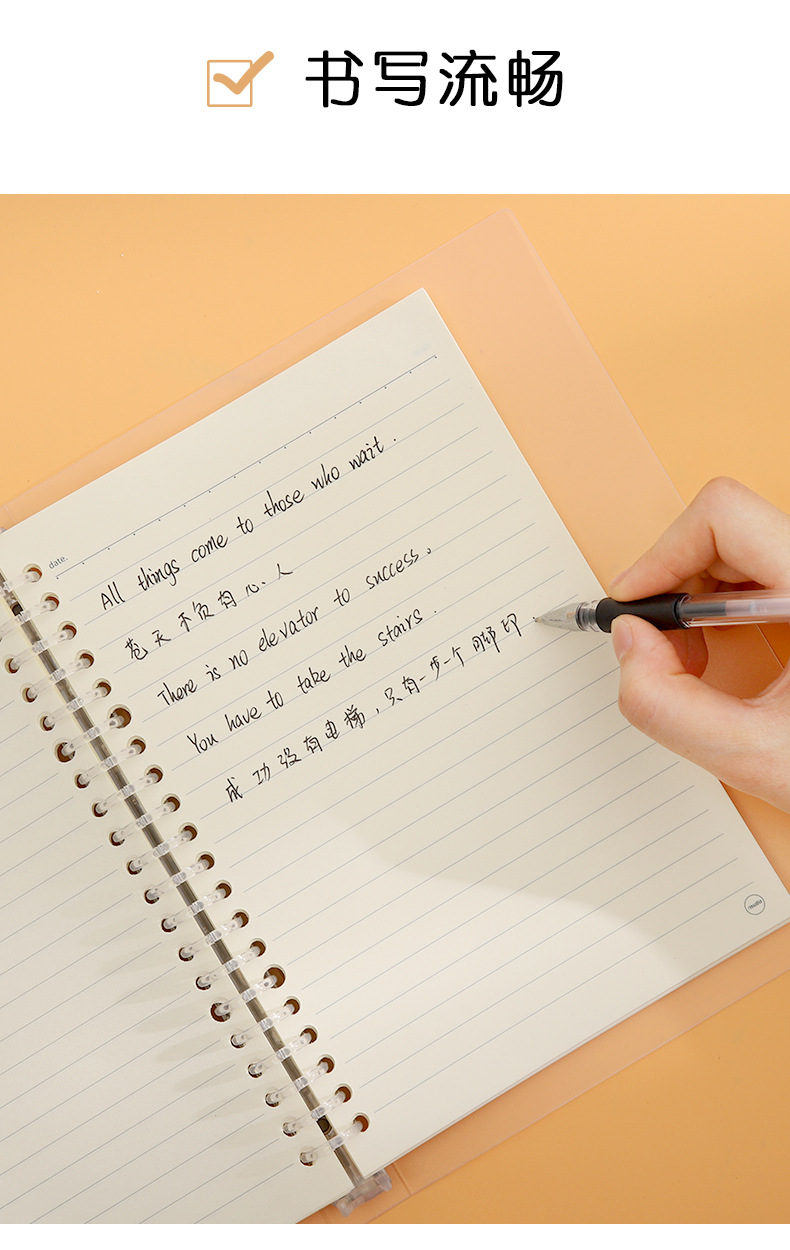 书写流畅
date.
All things come to those who wait.
苍天不负有心人
There is no elevator to success。
You have to take the stairs.
成功没有电梯，只有一步一个脚印